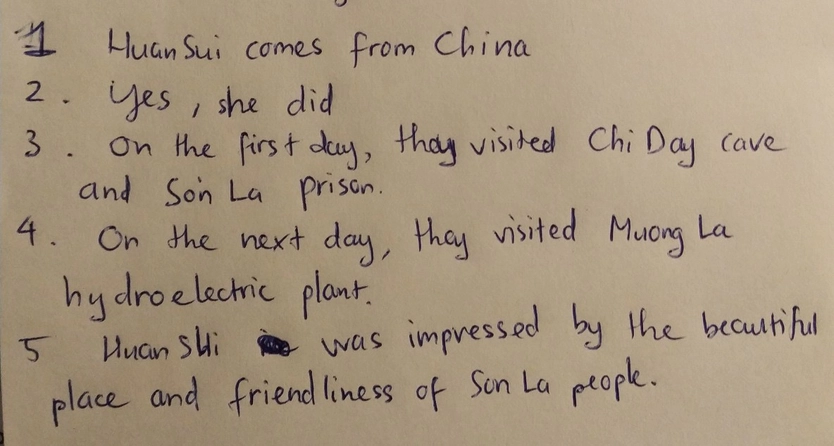 1 Huan Sui comes from China
2. Yes, she did
3. On the first day, they visited Chi Day cave
and Sơn La prison.
4. On the next day, they visited Muong La
hydroelectric plant.
5 Huan Shi was impressed by the beautiful
place and friendliness of Son La people.